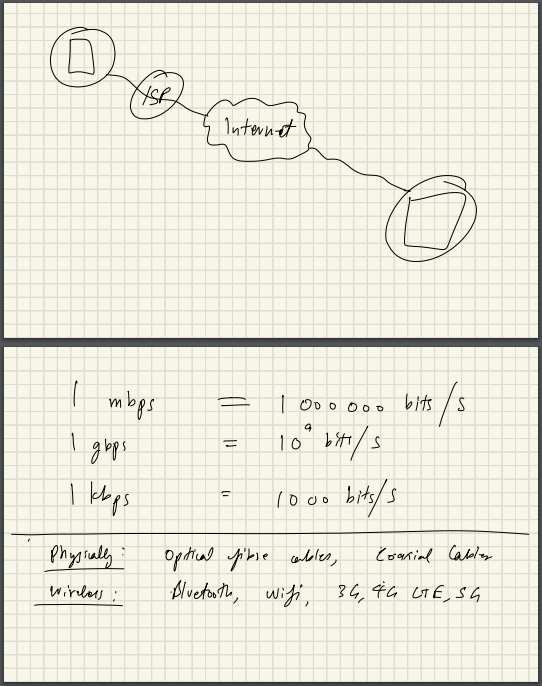 ISP
Internet
1 mbps = 1 000 000 bits/s
1 gbps = 10⁹ bits/s
1 kbps = 1000 bits/s
Physically: Optical fibre cables, Coaxial Cables
Wireless: Bluetooth, wifi, 3G, 4G LTE, 5G